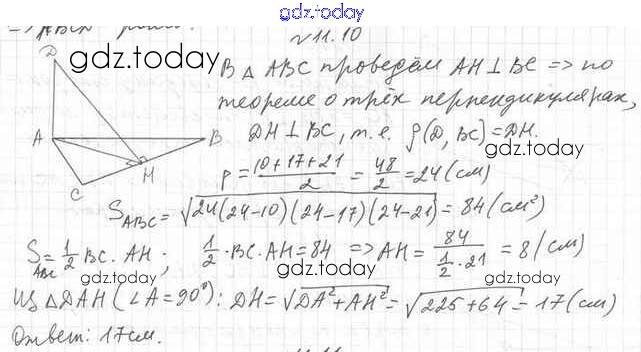 gdz.today
№ 11.10
gdz.today
D
A
B
C
H
В △ ABC проведём AH ⊥ BC => по
теореме о трёх перпендикулярах,
DH ⊥ BC, т.е. ρ(D, BC) = DH.
gdz.today
p = (10+17+21)/2 = 48/2 = 24 (см)
S ABC = √24(24-10)(24-17)(24-21) = 84 (см²)
S ABC = 1/2 BC · AH; 1/2 · BC · AH = 84 => AH = 84/(1/2 · 21) = 8 (см)
gdz.today gdz.today gdz.today
Из △DAH (∠A = 90°): DH = √DA² + AH² = √225 + 64 = 17 (см)
Ответ: 17 см.